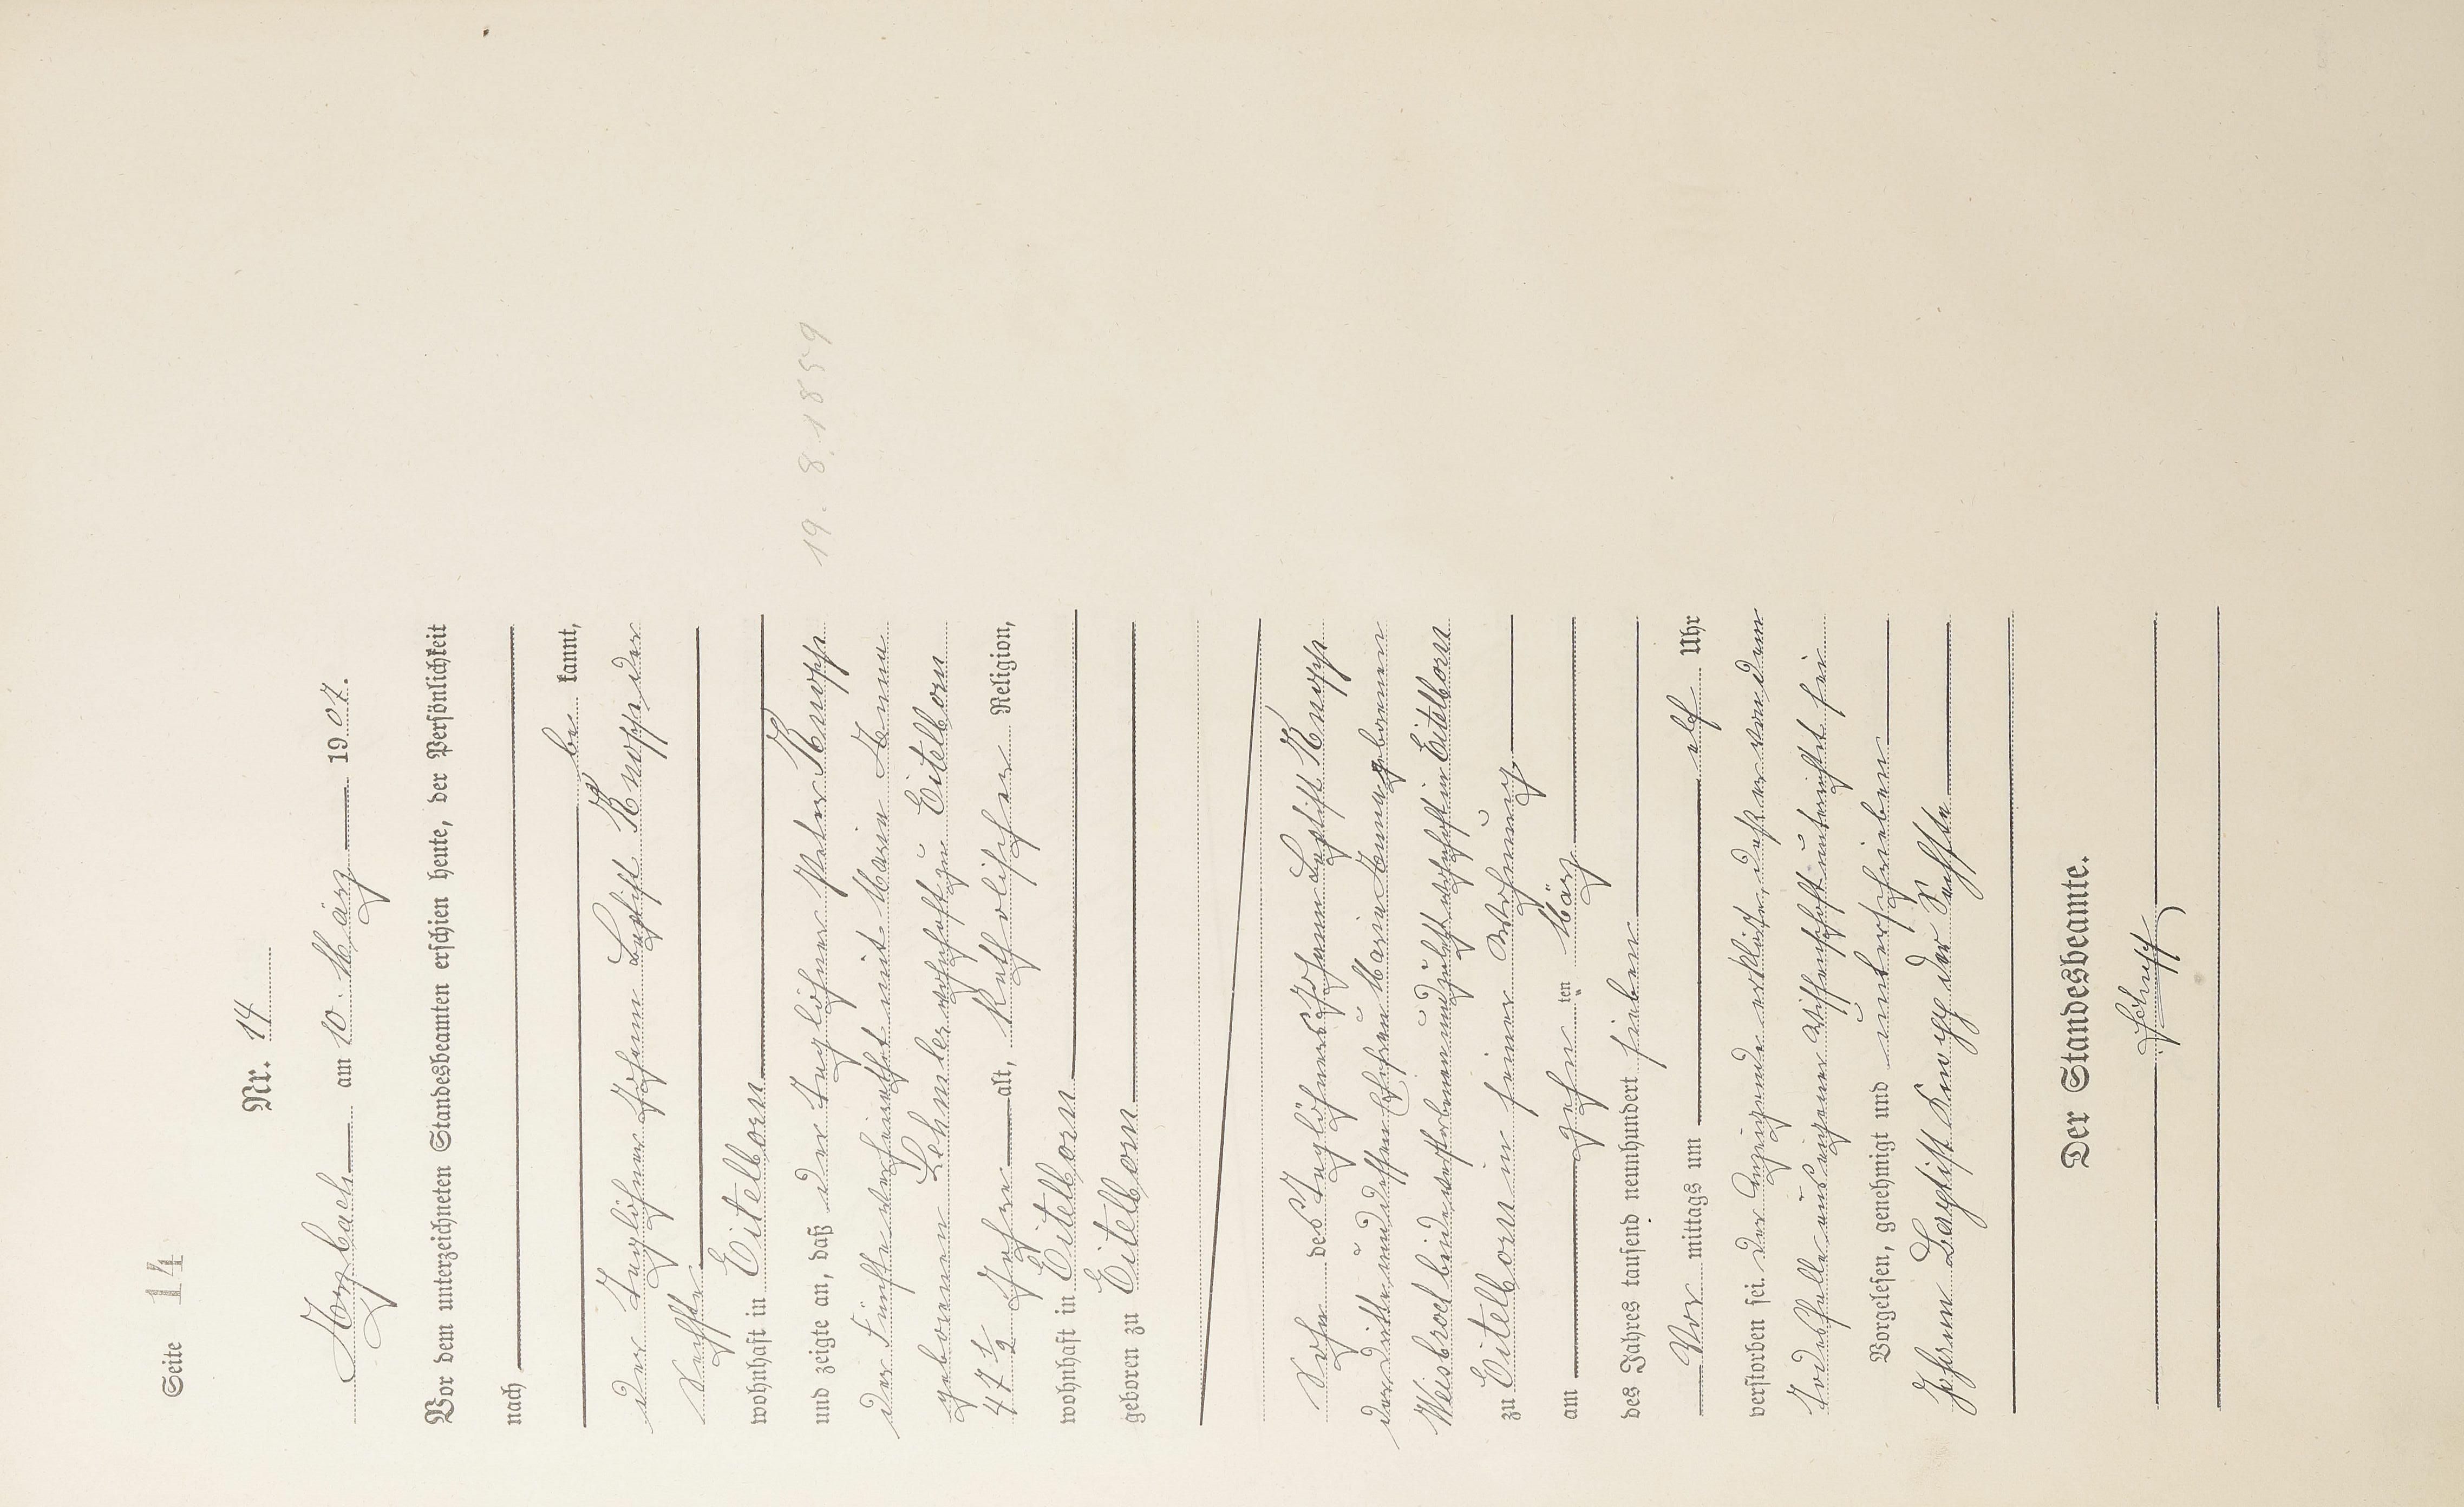 Seite 14
Nr. 14
Horbach am 10. März 1907.
Vor dem unterzeichneten Standesbeamten erschien heute, der Persönlichkeit
nach
be kannt,
der Taglöhner Johann Baptist Knopp der
Sechste
wohnhaft in Eitelborn
und zeigte an, daß der Taglöhner Peter Knopp
19. 8. 1859
der Fünfte verheirathet mit Maria Anna
geborenen Lehmler wohnhaft zu Eitelborn
47 1/2 Jahre alt, katholischer Religion,
wohnhaft in Eitelborn
geboren zu Eitelborn
Sohn des Taglöhners Johann Baptist Knopp
der Dritte und dessen Ehefrau Maria Anna geborenen
Weisbrod beide verstorben und zuletzt wohnhaft in Eitelborn
zu Eitelborn in seiner Wohnung
am zehn ten März
des Jahres tausend neunhundert sieben
Vor mittags um elf Uhr
verstorben sei. Der Anzeigende erklärte, daß er von dem
Todesfalle aus eigener Wissenschaft unterrichtet sei
Vorgelesen, genehmigt und unterschrieben
Johann Baptist Knopp der Sechste
Der Standesbeamte.